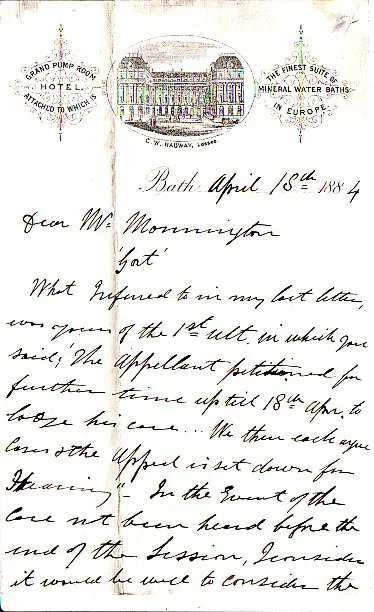 GRAND PUMP ROOM
HOTEL.
ATTACHED TO WHICH IS
THE FINEST SUITE OF
MINERAL WATER BATHS
IN EUROPE.
C. W. RADWAY, Lessee.
Bath April 18th 1884
Dear Mr Monnington
'Gort'
What I referred to in my last letter,
was yours of the 1st ult. in which you
said; "The Appellant petitioned for
further time up till 18th Apr. to
lodge his case... We then exchange
Cases & the Appeal is set down for
Hearing" - In the Event of the
Case not been heard before the
end of the Session, I consider
it would be well to consider the